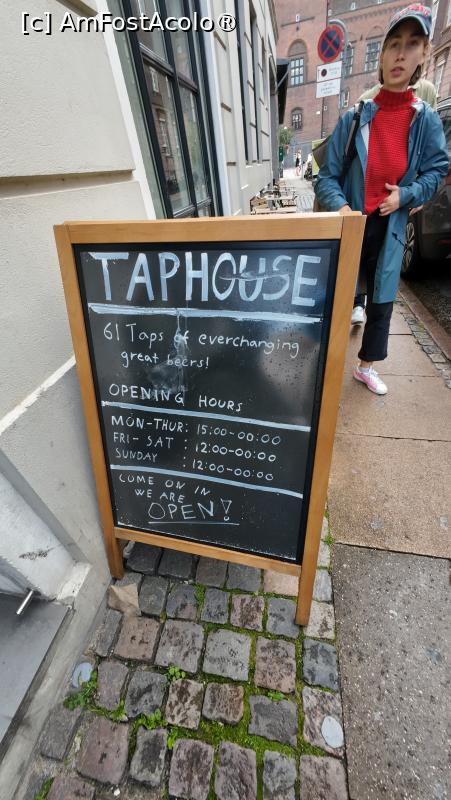 [c] AmFostAcolo ®
TAPHOUSE
61 Taps of everchanging
great beers!
OPENING HOURS
MON-THUR: 15:00-00:00
FRI-SAT : 12:00-00:00
SUNDAY : 12:00-00:00
COME ON IN
WE ARE
OPEN!